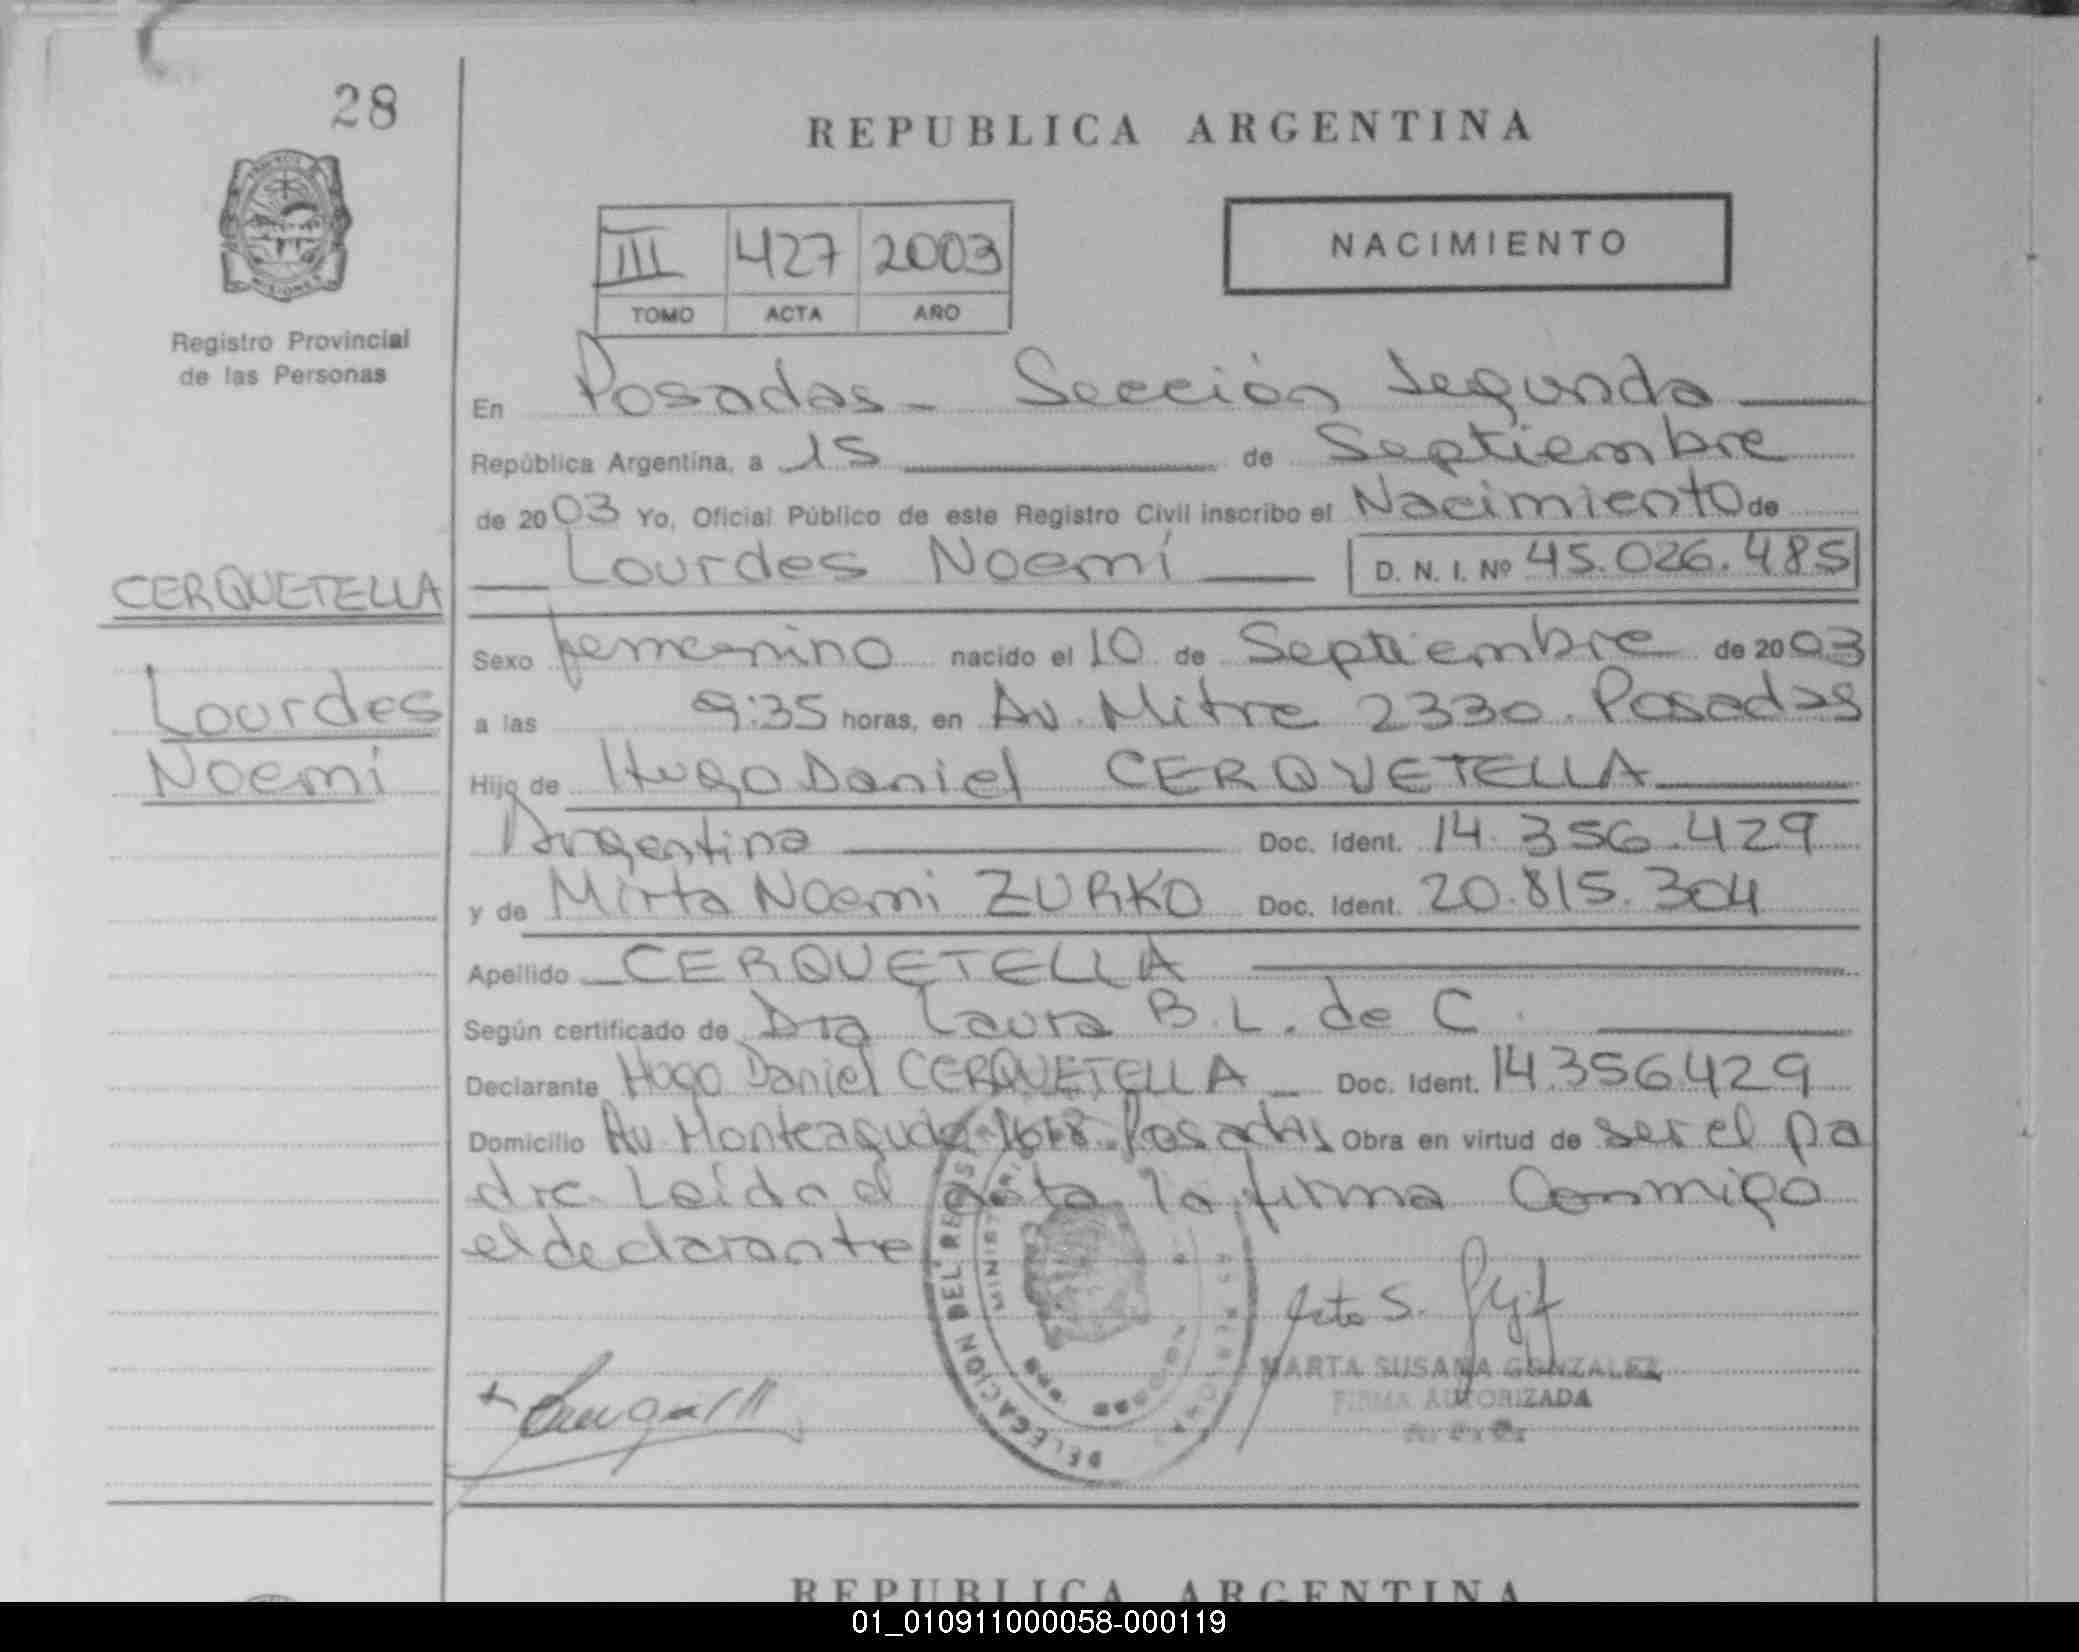 28
REPUBLICA ARGENTINA
NACIMIENTO
III 427 2003
TOMO ACTA AÑO
Registro Provincial
de las Personas
En Posadas - Sección Segunda
República Argentina, a 15 de Septiembre
de 2003 Yo, Oficial Público de este Registro Civil inscribo el Nacimiento de
Lourdes Noemí D. N. I. Nº 45.026.485
CERQUETELLA
Lourdes
Noemí
Sexo femenino nacido el 10 de Septiembre de 2003
a las 9:35 horas, en Av. Mitre 2330. Posadas
Hijo de Hugo Daniel CERQUETELLA
Argentina Doc. Ident. 14.356.429
y de Mirta Noemi ZURKO Doc. Ident. 20.815.304
Apellido CERQUETELLA
Según certificado de Dra Laura B. L. de C.
Declarante Hugo Daniel CERQUETELLA Doc. Ident. 14.356429
Domicilio Av Monteagudo Posadas Obra en virtud de ser el pa
dre. Leida el acta la firma Conmigo
el declarante
DELEGACION DEL
MARTA SUSANA GONZALEZ
FIRMA AUTORIZADA
REPUBLICA ARGENTINA
01_010911000058-000119